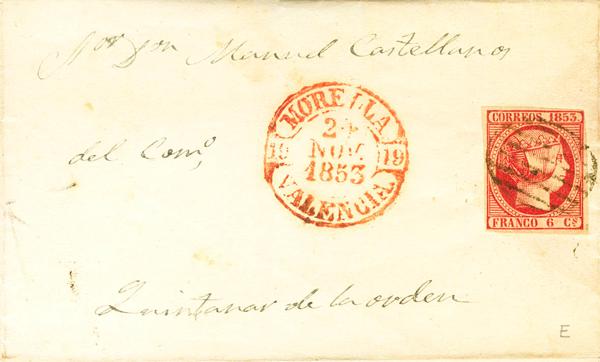 Sor Don Manuel Castellanos
del Como,
MORELLA
24
NOV.
1853
19 19
VALENCIA
CORREOS. 1853.
FRANCO 6 Cs
Quintanar de la orden
E